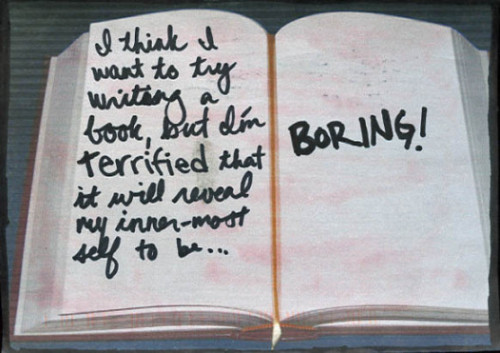 I think I
want to try
writing a
book, but I'm
terrified that
it will reveal
my inner-most
self to be...
BORING!